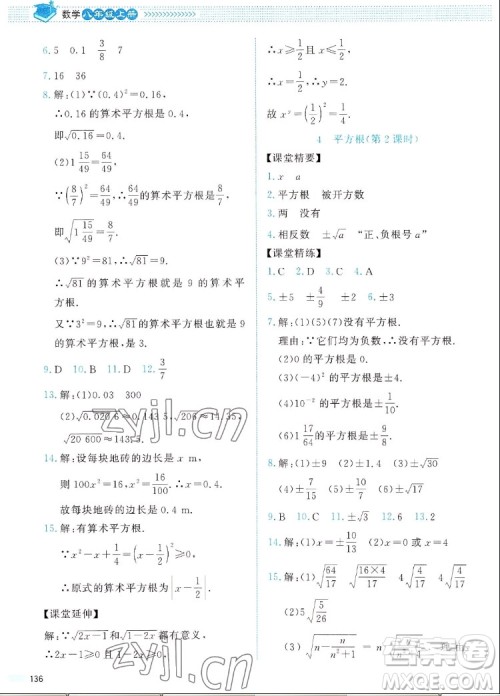 数学八年级上册
6. 5 0.1 3/8 7
7. 16 36
8. 解:(1)∵(0.4)²=0.16,
∴0.16 的算术平方根是 0.4,
即√0.16=0.4.
(2)1 15/49=64/49,
∵(8/7)²=64/49,∴64/49的算术平方根是8/7.
即√(1 15/49)=8/7.
(3)∵9²=81,∴√81=9.
∴√81 的算术平方根就是 9 的算术平方根.
又∵3²=9,∴√81的算术平方根是3.
9. D 10. B 11. D 12. 3/7
13. 解:(1)0.03 300
(2)√0.020 6≈0.143 5,√206≈14.35,
√20 600≈143.5
14. 解:设每块地砖的边长是 x m,
则 100x²=16,x²=16/100,x=0.4.
故每块地砖的边长是 0.4 m.
15. 解:有算术平方根.
∵x²-x+1/4=(x-1/2)²,
∴原式的算术平方根为|x-1/2|.
【课堂延伸】
解:∵√(2x-1)和√(1-2x)都有意义,
∴2x-1≥0,1-2x≥0,
∴x≥1/2且x≤1/2.
∴x=1/2,∴y=2.
故 x^y=(1/2)²=1/4.
4 平方根(第 2 课时)
【课堂精要】
1. x a
2. 平方根 被开方数
3. 两 没有
4. 相反数 ±√a “正、负根号 a”
【课堂精练】
1. C 2. D 3. A 4. C
5. ±5 ±4/9 ±2 6. ±3
7. 解:(1)(5)(7)没有平方根.
理由:∵它们均为负数,∴没有平方根.
(2)0 的平方根是 0.
(3)(-4)²的平方根是±4.
(4)10⁻²的平方根是±1/10.
8. 解:(1)±9 (2)±1/4 (3)±√30
9. B 10. C 11. ±√3 12. 6 13. 2
14. 解:(1)x=±10/13 (2)x=-4
15. 解:(1)√(64/17) √(16×4/17) 4√(4/17)
(2)5√(5/26)
136
zyjl.cn